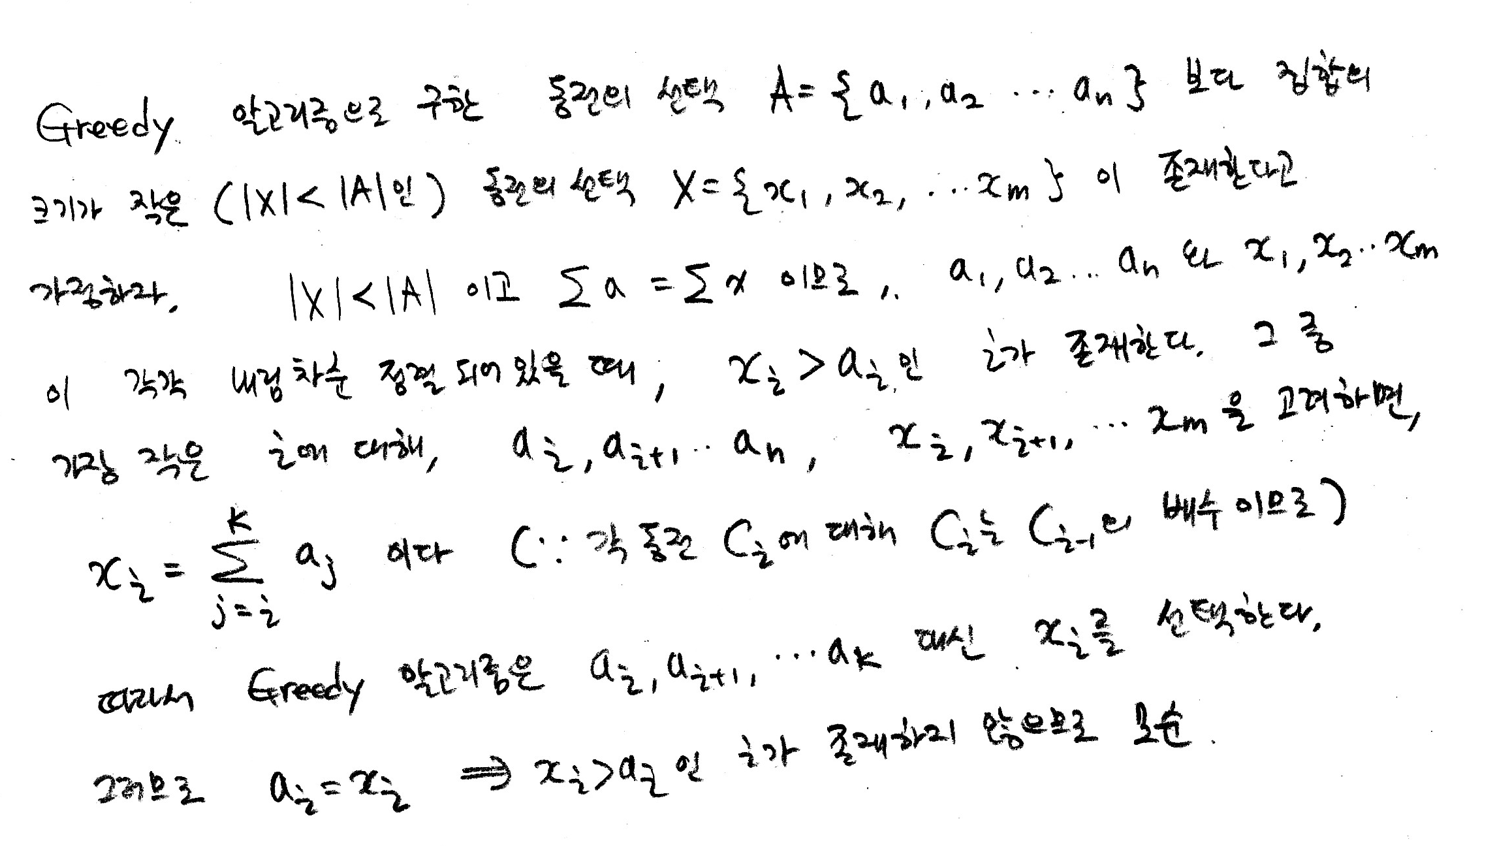 Greedy 알고리즘으로 구한 동전의 선택 A = {a₁, a₂ ⋯ aₙ} 보다 집합의
크기가 작은 (|X| < |A|인) 동전의 선택 X = {x₁, x₂, ⋯ xₘ} 이 존재한다고
가정하자. |X| < |A| 이고 ∑a = ∑x 이므로, a₁, a₂ ⋯ aₙ 와 x₁, x₂ ⋯ xₘ
이 각각 내림차순 정렬 되어 있을 때, xᵢ > aᵢ 인 i가 존재한다. 그 중
가장 작은 i에 대해, aᵢ, aᵢ₊₁ ⋯ aₙ, xᵢ, xᵢ₊₁, ⋯ xₘ 을 고려하면,
xᵢ = ∑_{j=i}^{k} aⱼ 이다 (∵ 각 동전 Cᵢ에 대해 Cᵢ는 Cᵢ₋₁의 배수이므로)
따라서 Greedy 알고리즘은 aᵢ, aᵢ₊₁, ⋯ aₖ 대신 xᵢ를 선택한다.
그러므로 aᵢ = xᵢ ⇒ xᵢ > aᵢ 인 i가 존재하지 않으므로 모순.